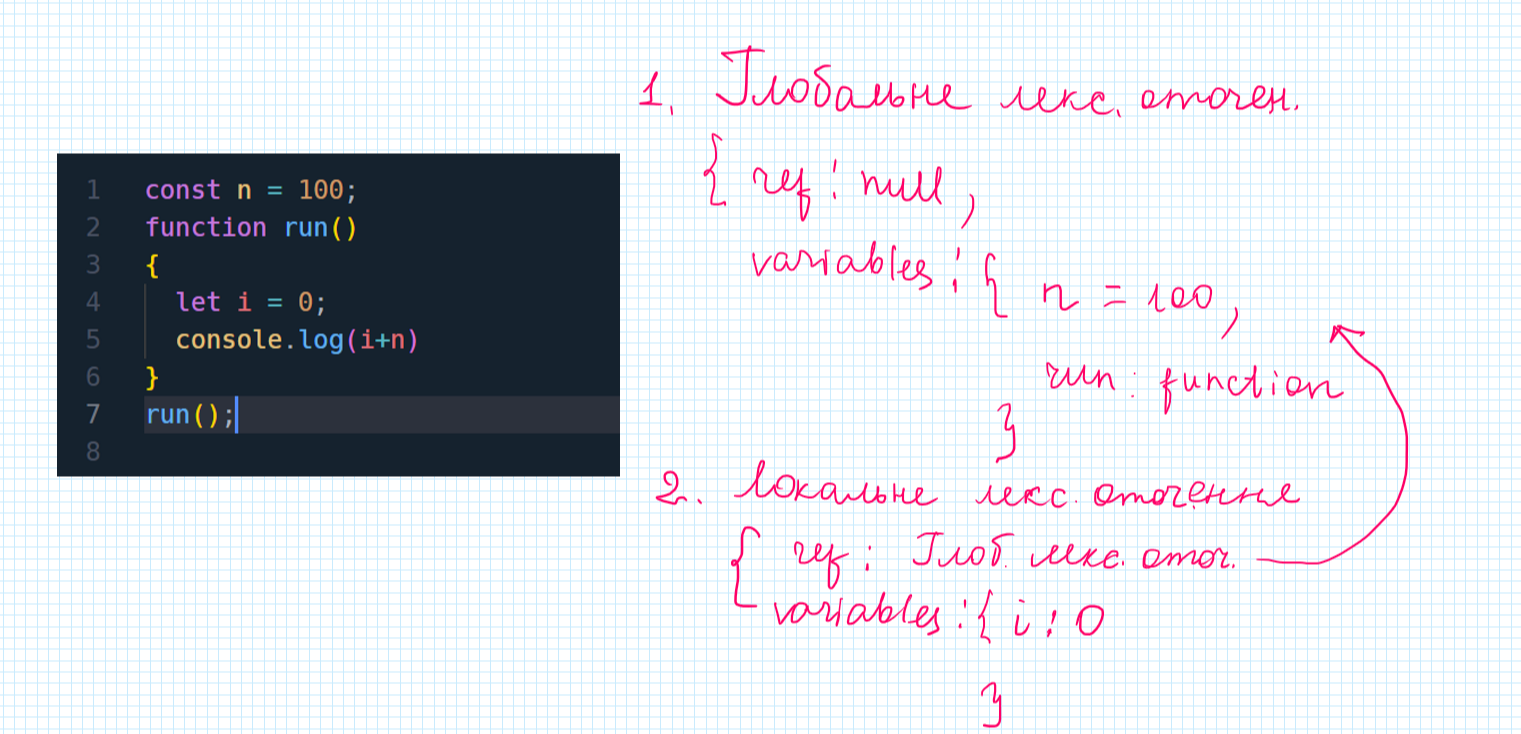 1 const n = 100;
2 function run()
3 {
4 let i = 0;
5 console.log(i+n)
6 }
7 run();
8
1. Глобальне лекс. оточен.
{ ref : null,
variables : { n = 100,
run : function
}
2. Локальне лекс. оточення
{ ref : Глоб. лекс. оточ.
variables : { i : 0
}